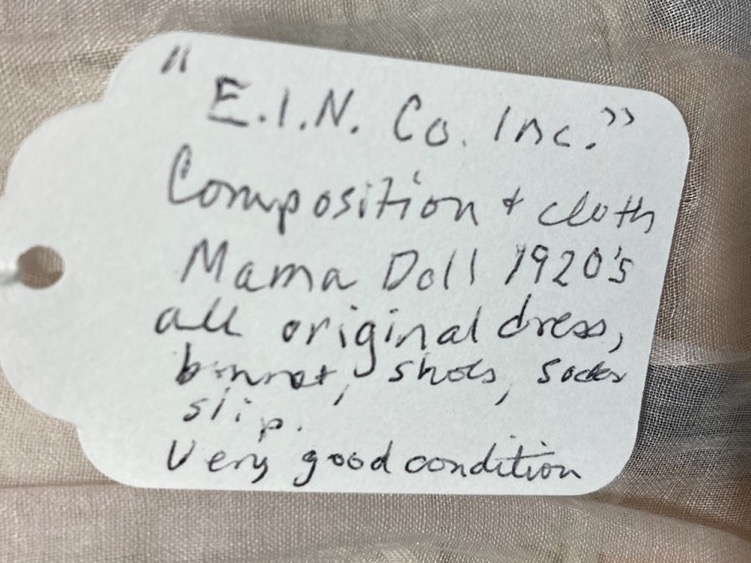 "E.I.N. Co. Inc."
Composition + cloth
Mama Doll 1920's
all original dress,
bonnet, shoes, socks
slip.
Very good condition